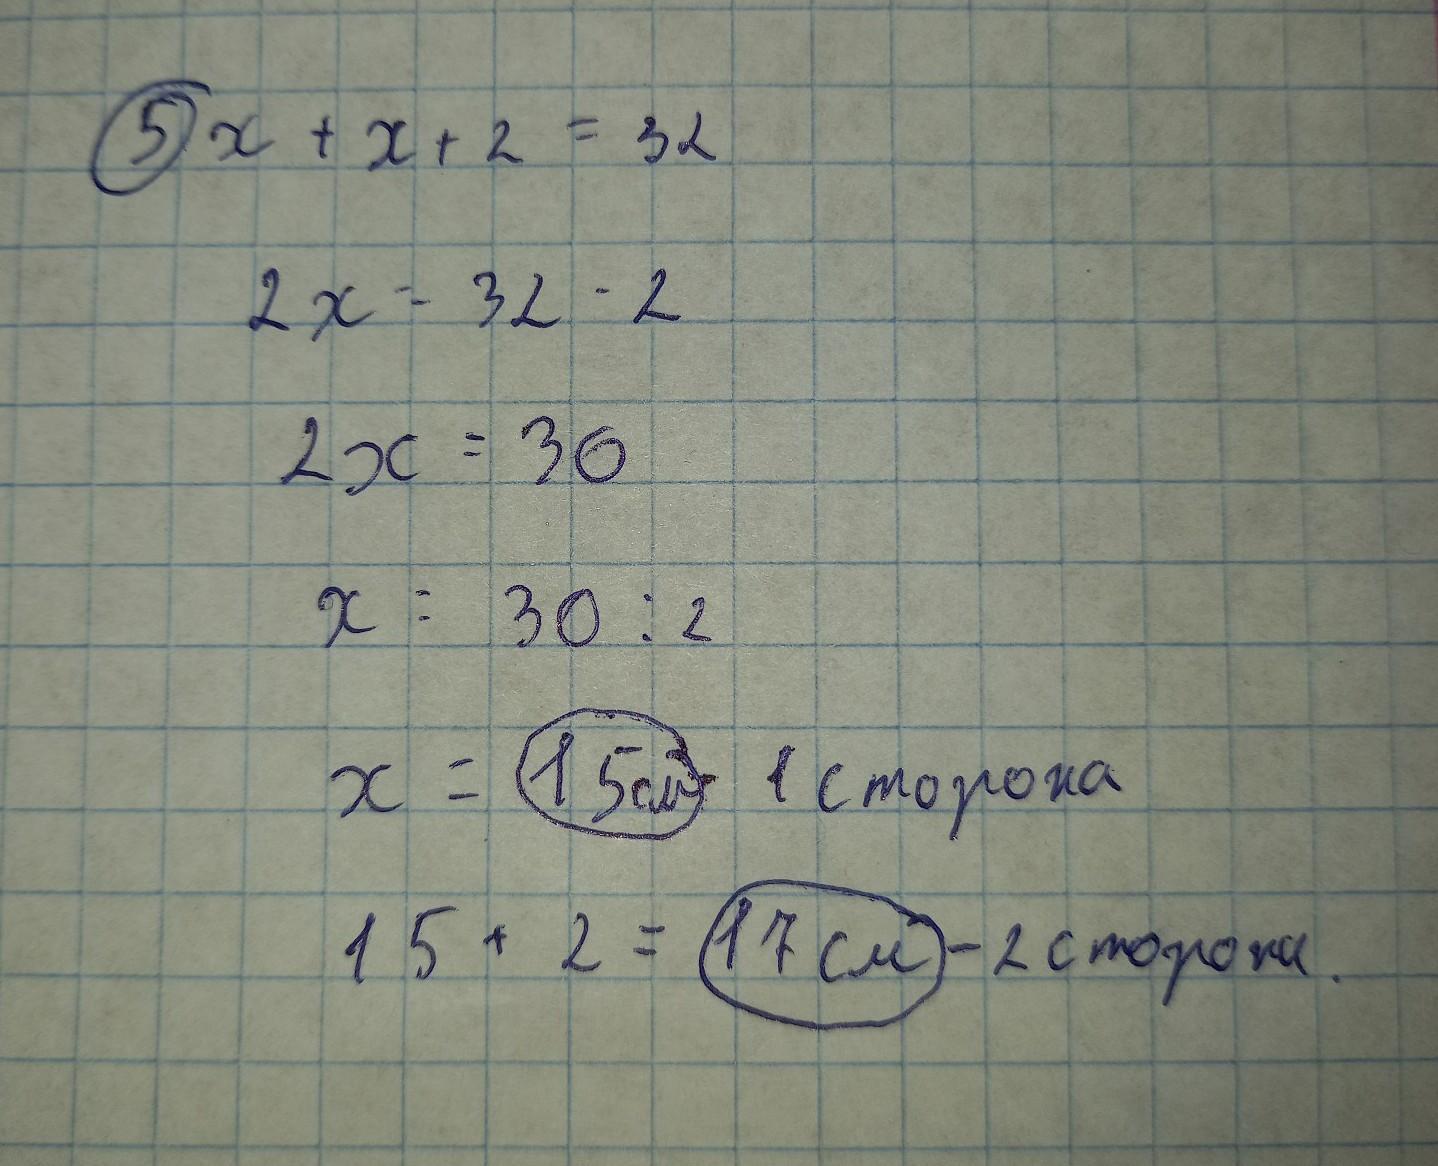 5 x + x + 2 = 32
2x = 32 - 2
2x = 30
x = 30 : 2
x = 15см - 1 сторона
15 + 2 = 17 см - 2 сторона.